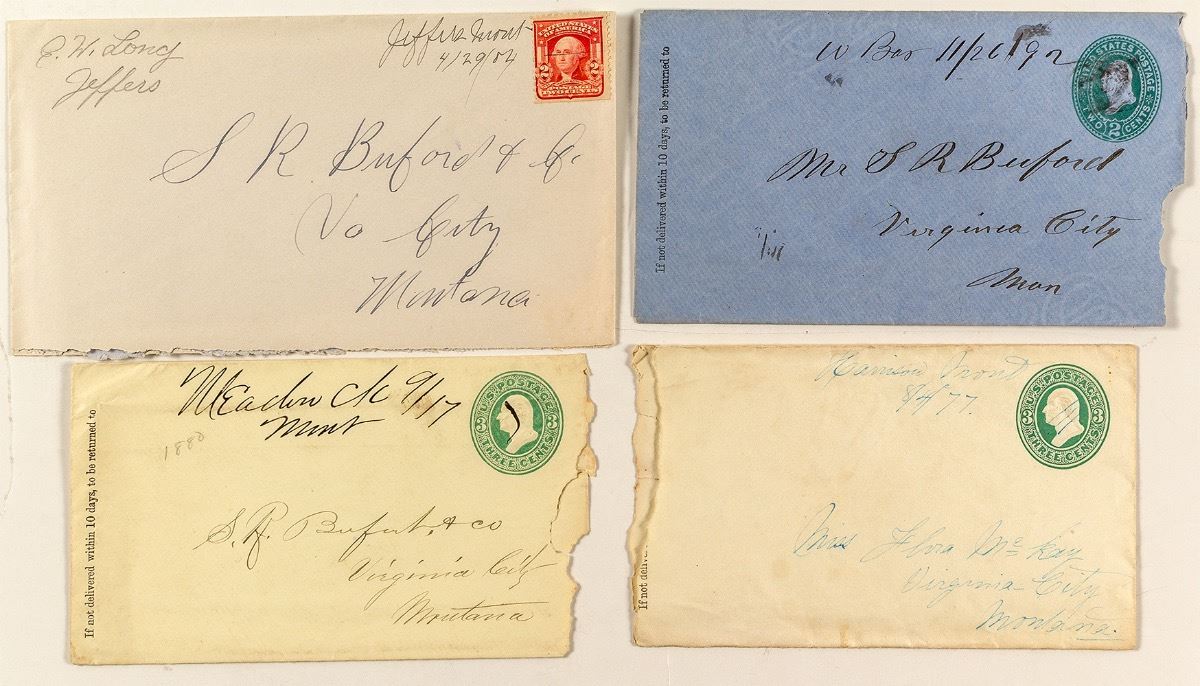 E. W. Long
Jeffers
Jeffers Mont
4/29/04
UNITED STATES OF AMERICA
2 2
POSTAGE
TWO CENTS
S R Buford & Co.
Va City
Montana
If not delivered within 10 days, to be returned to
W Bar 11/26/92
UNITED STATES POSTAGE
TWO 2 CENTS
Mr S R Buford
Virginia City
Mon
If not delivered within 10 days, to be returned to
Meadow Ck 9/17
Mont
1880
U.S. POSTAGE
3 3
THREE CENTS
S. R. Bufort, & co
Virginia City
Montana
If not deliv
Harrison Mont
8/4/77.
U.S. POSTAGE
3 3
THREE CENTS
Miss Flora Mc Kay
Virginia City
Montana.